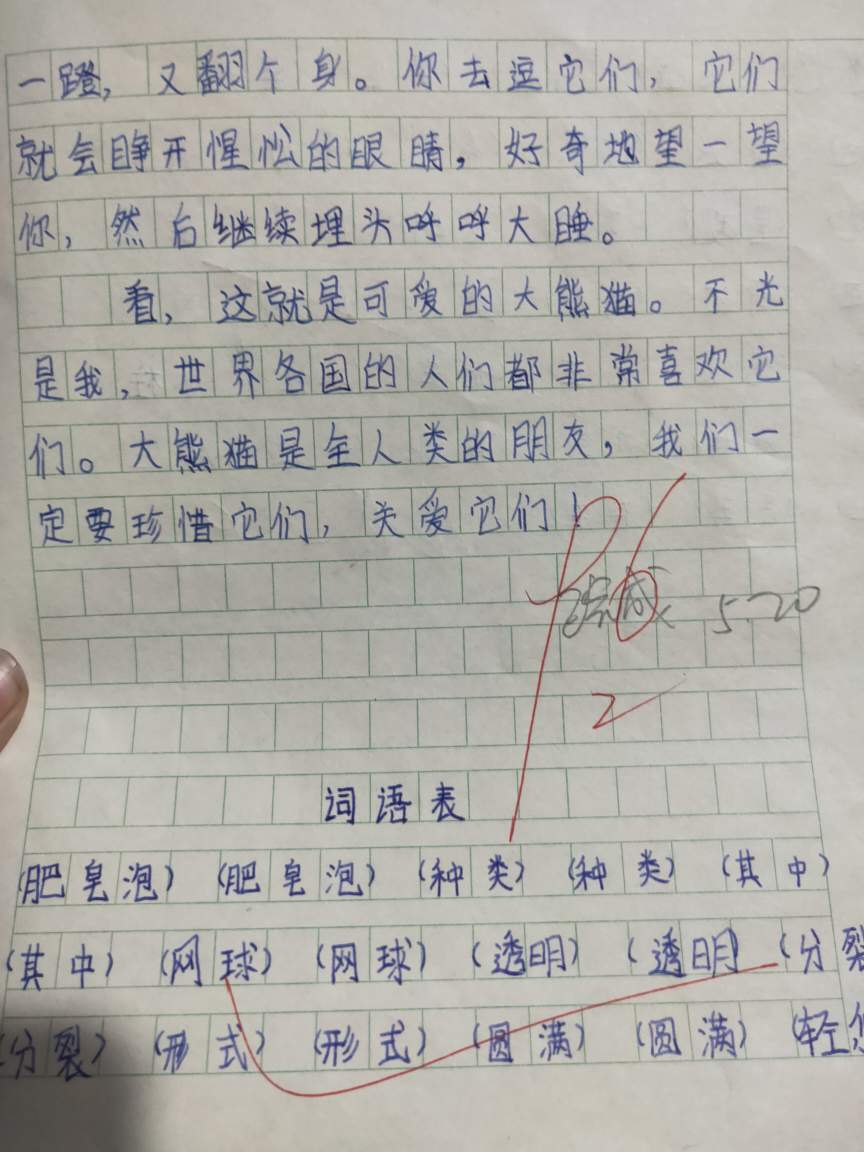 一蹬，又翻个身。你去逗它们，它们
就会睁开惺忪的眼睛，好奇地望一望
你，然后继续埋头呼呼大睡。
看，这就是可爱的大熊猫。不光
是我，世界各国的人们都非常喜欢它
们。大熊猫是全人类的朋友，我们一
定要珍惜它们，关爱它们！
5.20
2
词语表
（肥皂泡）（肥皂泡）（种类）（种类）（其中）
（其中）（网球）（网球）（透明）（透明）（分裂
（分裂）（形式）（形式）（圆满）（圆满）（轻